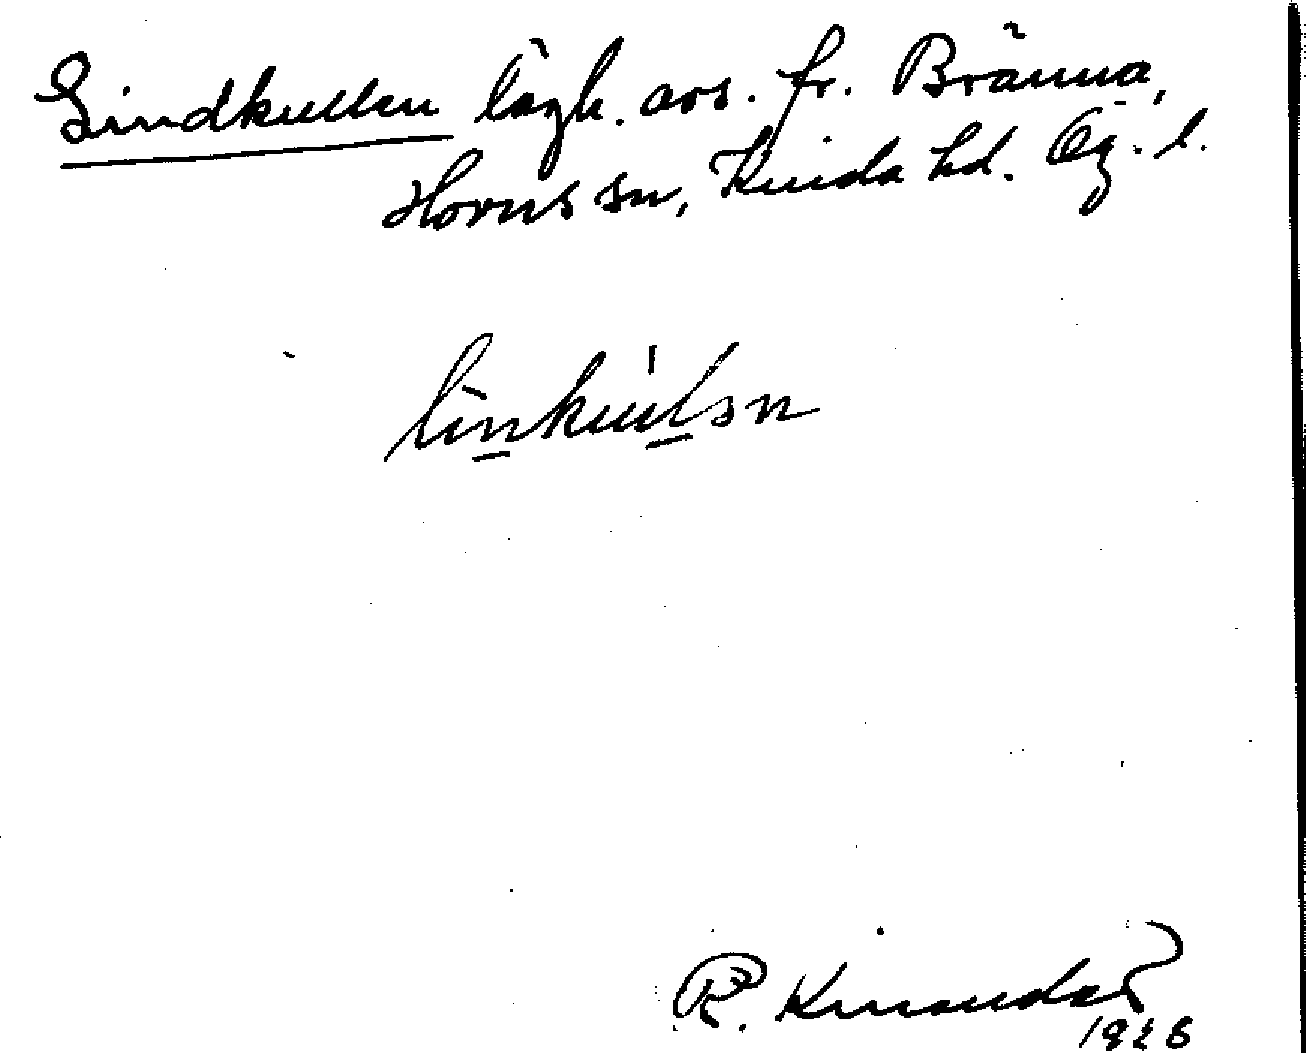 Lindkullen lägh. avs. fr. Bränna,
Horns sn, Kinda hd. Ög. l.
linkulən
R. Kinander
1926